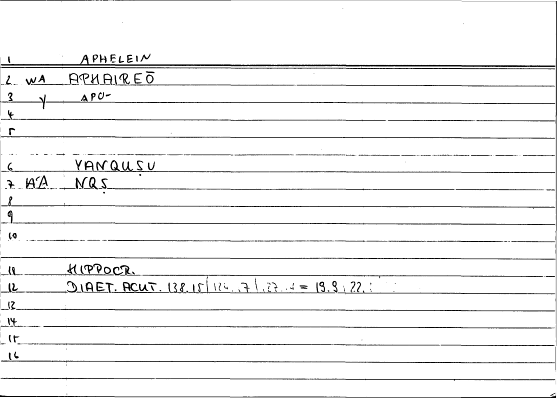 1 APHELEIN
2 WA APHAIREŌ
3 Y APO-
4
5
6 YANQUṢU
7 NQṢ
8
9
10
11 HIPPOCR.
12 DIAET. ACUT. 138.15 = 19.9
13
14
15
16